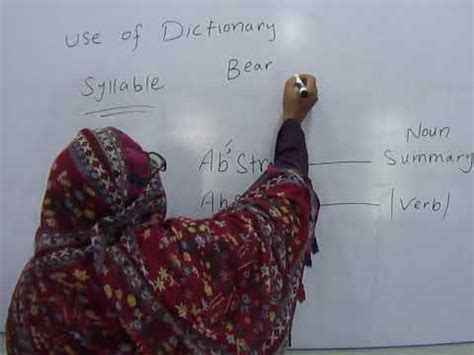 Use of Dictionary
Syllable
Bear
Noun
Ab'str
Summary
Abs
(Verb)